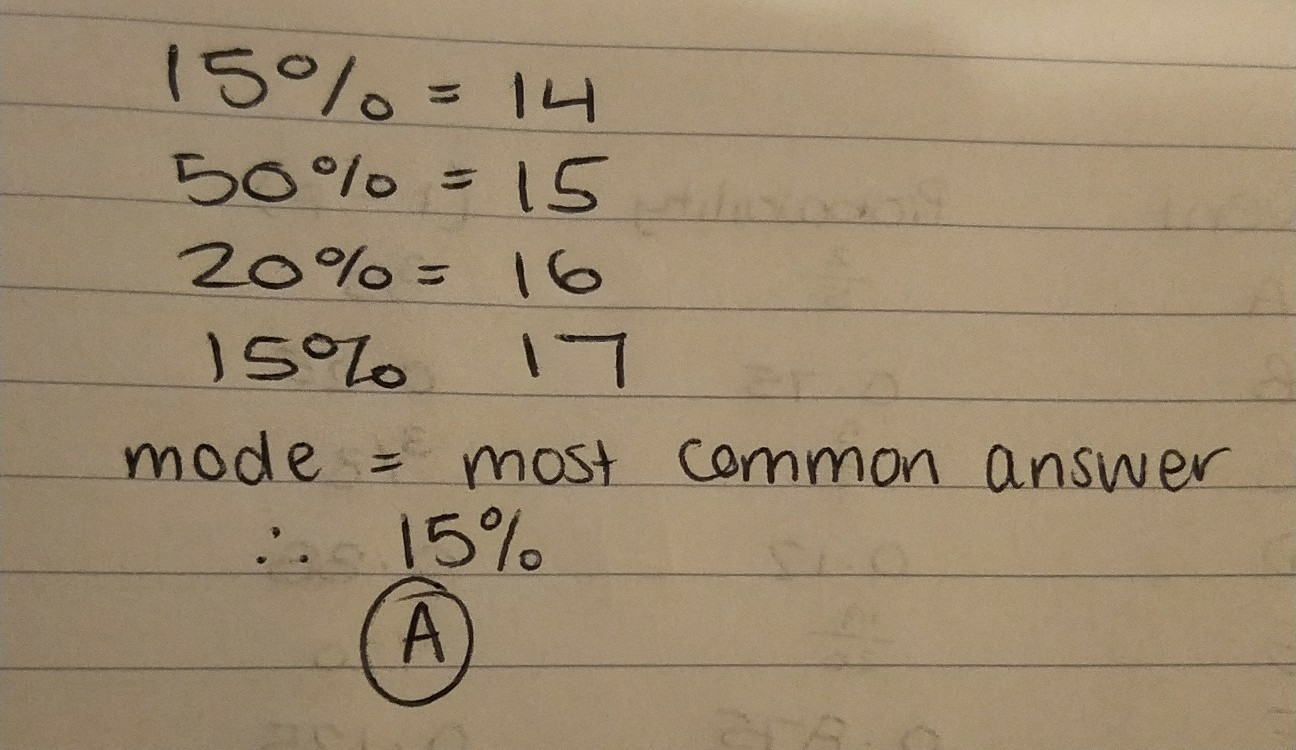 15% = 14
50% = 15
20% = 16
15% 17
mode = most common answer
∴ 15%
A